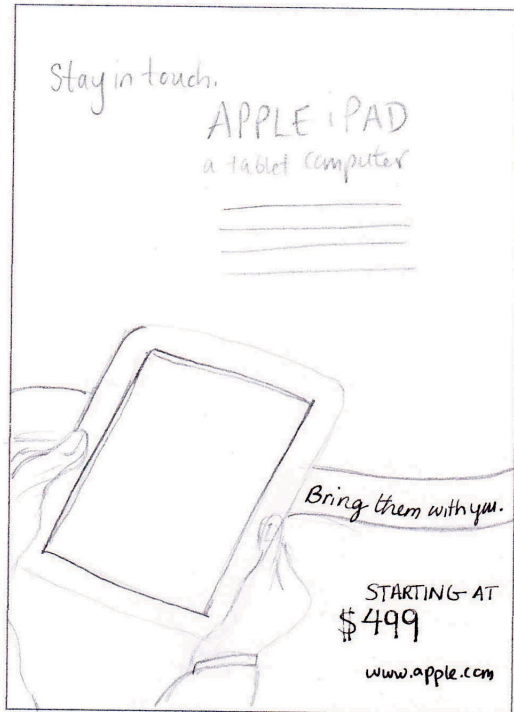 Stay in touch.
APPLE iPAD
a tablet computer
Bring them with you.
STARTING AT
$499
www.apple.com